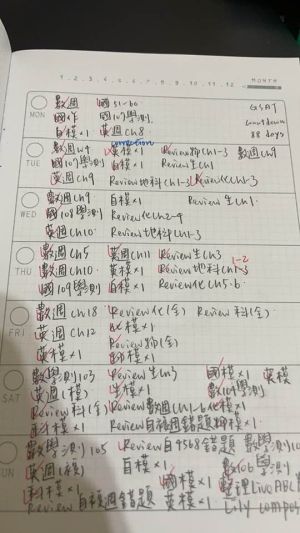 1 . 2 . 3 . 4 . 5 . 6 . 7 . 8 . 9 . 10 . 11 . 12 . MONTH
MON
數週 國51-60 GSAT
國作 國107學測 countdown
自模×1 英週ch8 88 days
correction
TUE
數週ch9 英模×1 Review物ch1-3 數週ch9
國107學測 自模×1 Review生ch1
英週ch9 Review地科ch1-3 Review化ch1-3
WED
數週ch9 自模×1 Review生ch1
國108學測 Review化ch2-4
英週ch10 Review地科ch1-3
THU
數週ch5 英週ch11 Review生ch3
1-2
數週ch10 英模×1 Review地科ch1-3
國109學測 自模×1 Review化ch5-6
FRI
數週ch18 Review化(全) Review 科(全)
英週ch12 化模×1
英模×1 Review物(全)
物模×1
SAT
數學測103 Review生ch3 國模×1 英模
英週1(模) 生模×1 數104學測
Review地科(全) Review數週ch1-6 化模×1
英模×1 Review自模週錯題 物模×1
SUN
數學測105 Review自9568錯題 數學測10
英週1(模) 自模×1 數106學測
科模×1 國模×1 整理Live ABC
Review自模週錯題 英模×1 Lily compos